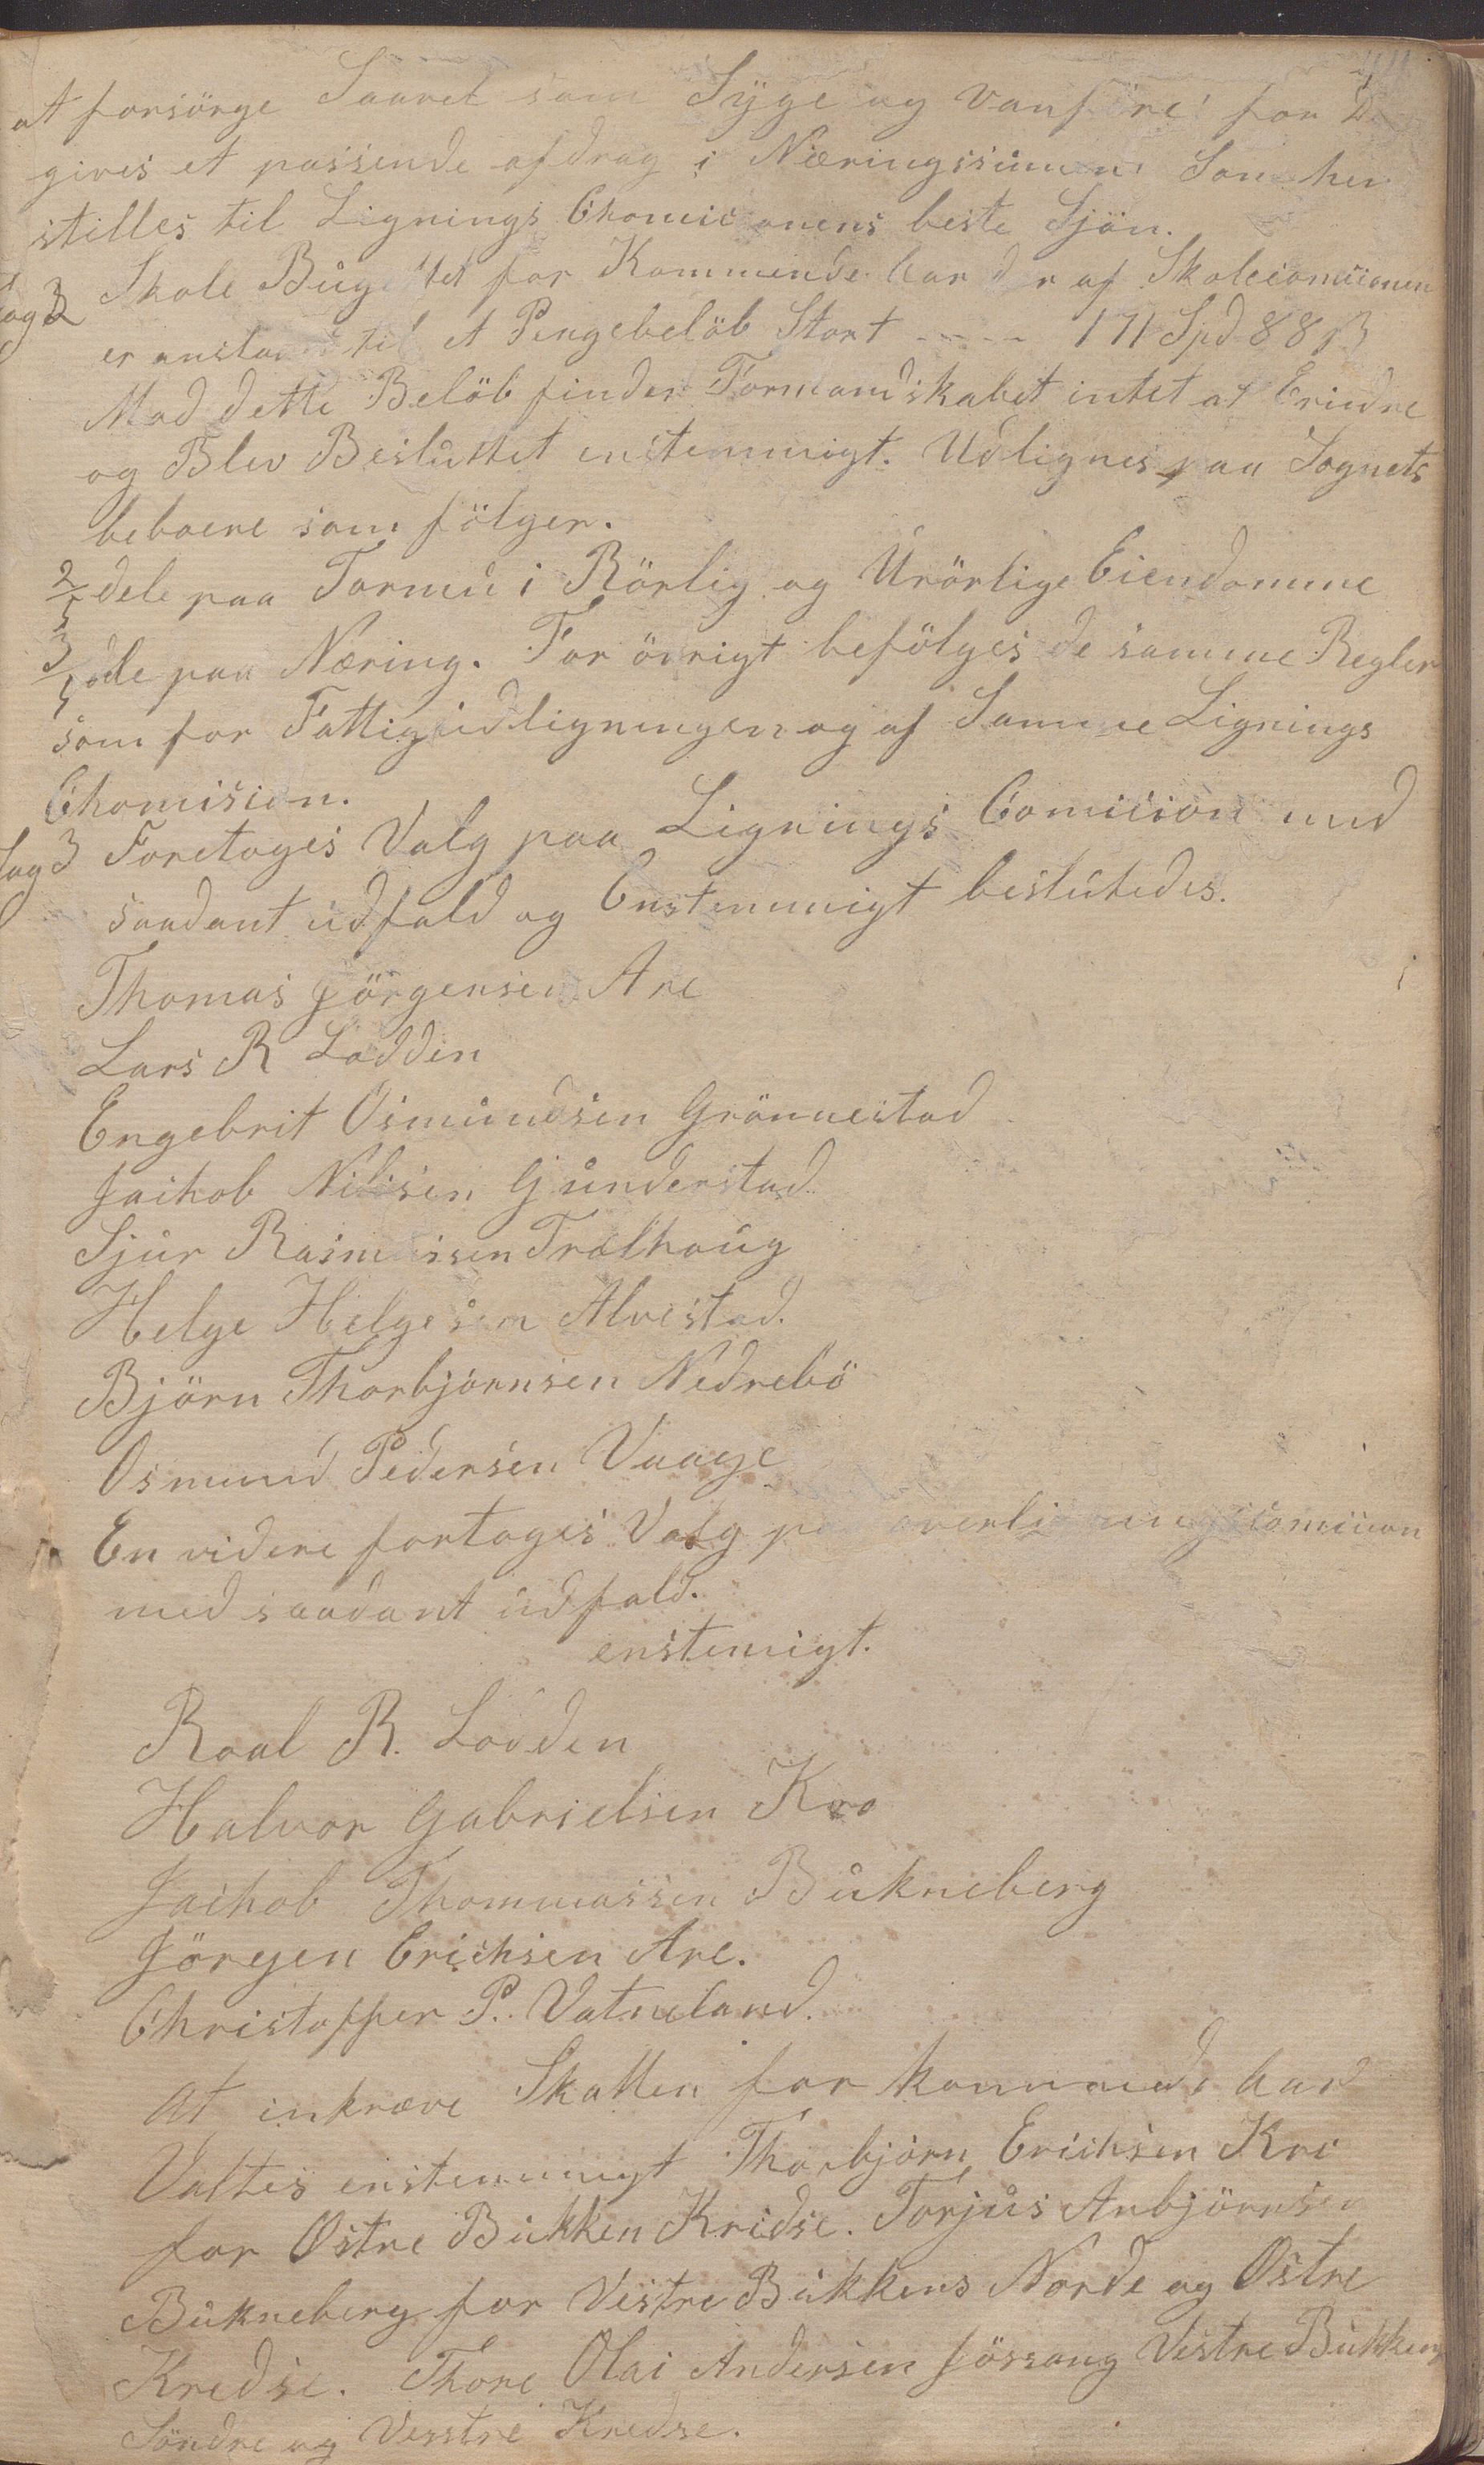 at forsörge Saavel som Syge og Vanföre for
gives et passende afdrag i Næringssummen Som hen
stilles til Lignings Chomisionens beste Sjön.
Sag 2 Skole Büge tet for Kommende Aar der af Skolecomisionen
er anslaaet til et Pengebelöb Stort ---- 171 Spd 88 β
Mod dette Belöb finder Formandskabet intet at Erindre
og Blev Beslüttet enstemmigt. Udlignes paa Sognets
beboere som fölger.
2/5 dele paa Formü i Rörlig og Urörlige Eiendomme
3/5 dele paa Næring. For övrigt befölges de samme Regler
som for Fattigüdligningen og af Samme Lignings
Chomision.
Sag 3 Foretoges Valg paa Lignings Comision med
saadant üdfald og Enstemmigt beslütedes.
Thomas Jörgensen Are
Lars R Lodden
Engebrit Osmündsen Grönnestad
Jaihob Nilsen Gjünderstad
Sjür Rasmussen Tralhaüg
Helge Helgesen Alvestad.
Björn Thorbjörnsen Nedrebö
Osmund Pedersen Vaage
En videre fortoges Valg paa overlignings comision
med saadant üdfald.
enstemigt.
Roal R. Lodden
Halvor Gabrielsen Kro
Jaihob Thommassen Bükneberg
Jörgen Erichsen Are.
Christoffer P. Vatneland.
At inkræve Skatten for kommende Aar
Valtes enstemmigt Thorbjörn Erichsen Kro
for Ostre Bükken Kridse. Torjüs Anbjörnsen
Bükneberg for Vestre Bükkens Nordre og Ostre
Kredse. Thore Olai Andersen Jössang Vestre Bükkens
Söndre og Vesstre Kredse.